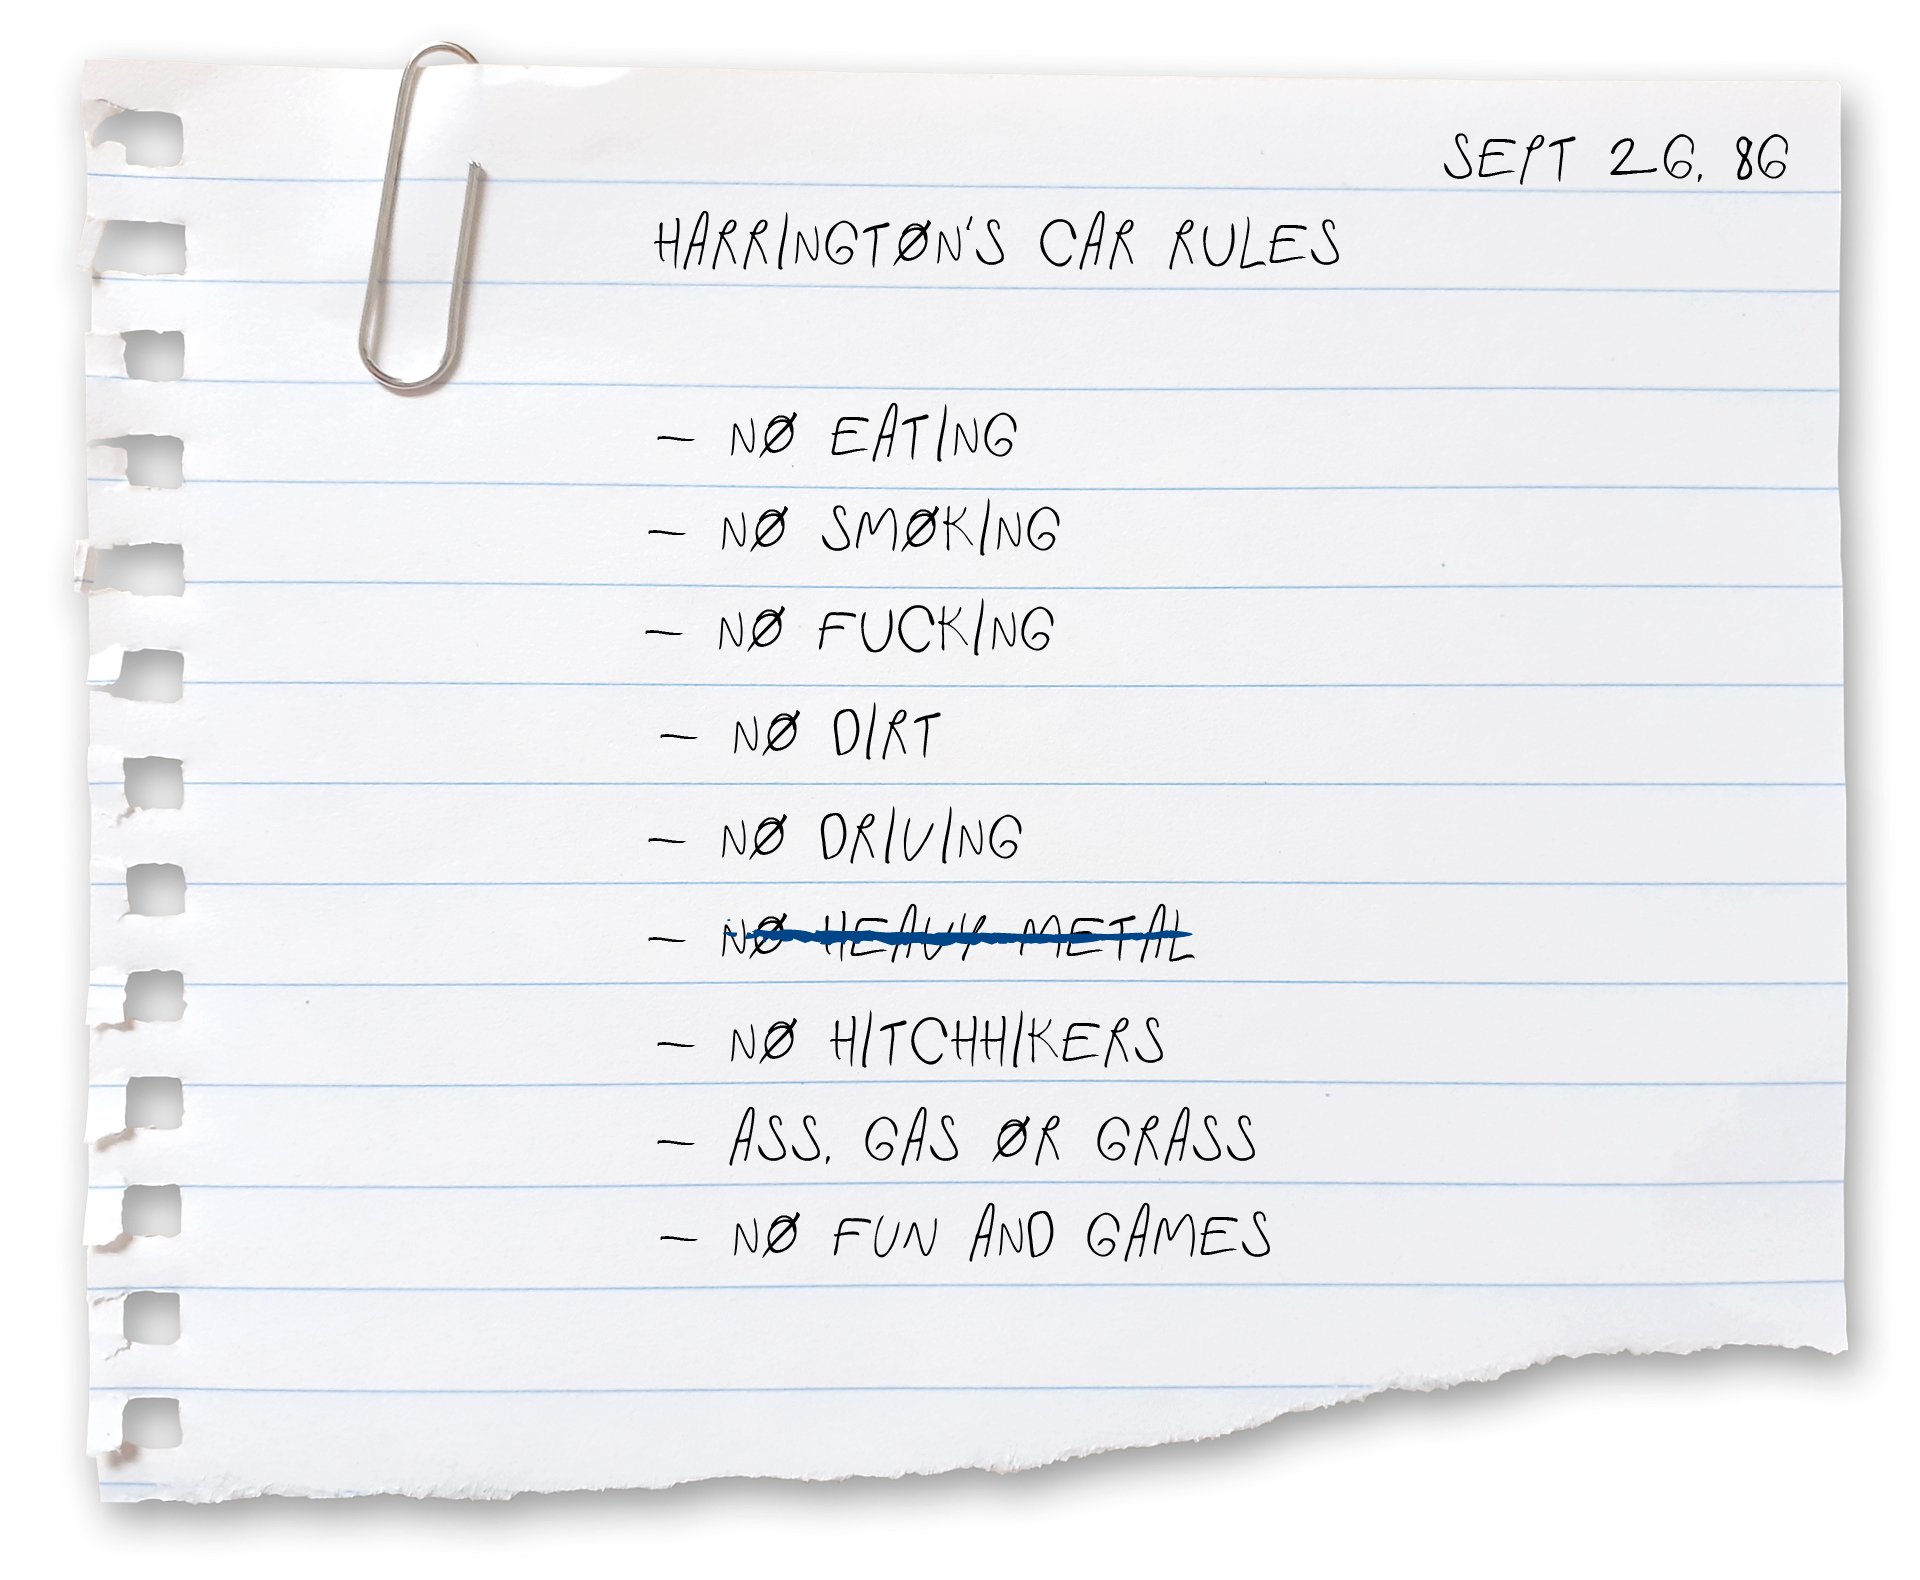 SEPT 26, 86
HARRINGTØN'S CAR RULES
– NØ EATING
– NØ SMØKING
– NØ FUCKING
– NØ DIRT
– NØ DRIVING
– NØ HEAVY METAL
– NØ HITCHHIKERS
– ASS, GAS ØR GRASS
– NØ FUN AND GAMES